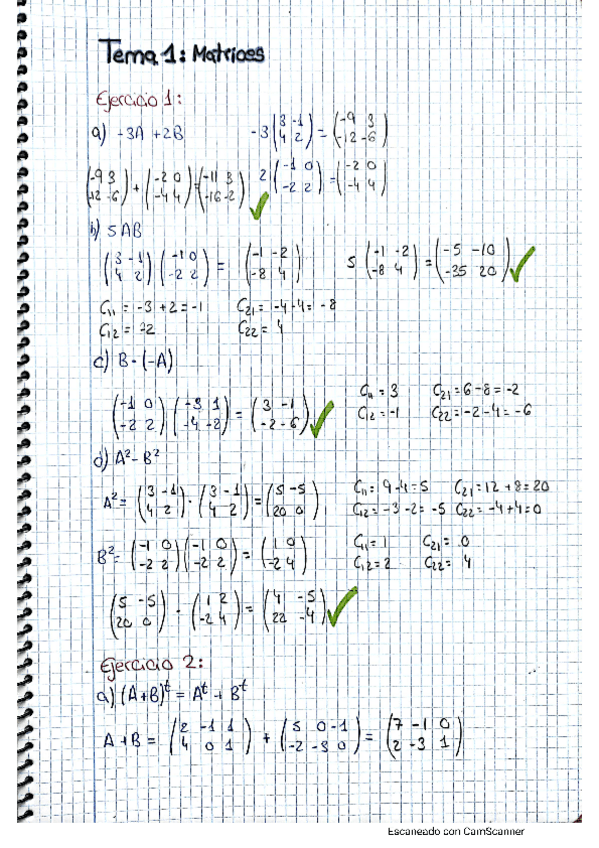 Tema 1: Matrices
Ejercicio 1:
a) -3A + 2B   -3 (3 -1 / 4 2) = (-9 3 / -12 -6)
(-9 3 / -12 -6) + (-2 0 / -4 4) = (-11 3 / -16 -2)   2 (-1 0 / -2 2) = (-2 0 / -4 4)
b) 5AB
(3 -1 / 4 2) (-1 0 / -2 2) = (-1 -2 / -8 4)   5 (-1 -2 / -8 4) = (-5 -10 / -35 20)
C11 = -3 + 2 = -1   C21 = -4 - 4 = -8
C12 =   C22 = 4
c) B · (-A)
(-1 0 / -2 2) (-3 1 / -4 -2) = (3 -1 / -2 -6)   C11 = 3   C21 = 6 - 8 = -2
C12 = -1   C22 = -2 - 4 = -6
d) A² - B²
A² = (3 -1 / 4 2) · (3 -1 / 4 2) = (5 -5 / 20 0)   C11 = 9 - 4 = 5   C21 = 12 + 8 = 20
C12 = -3 - 2 = -5   C22 = -4 + 4 = 0
B² = (-1 0 / -2 2) (-1 0 / -2 2) = (1 0 / -2 4)   C11 = 1   C21 = 0
C12 = 2   C22 = 4
(5 -5 / 20 0) - (1 2 / -2 4) = (4 -5 / 22 -4)
Ejercicio 2:
a) (A+B)ᵗ = Aᵗ + Bᵗ
A + B = (2 -1 1 / 4 0 1) + (5 0 -1 / -2 -3 0) = (7 -1 0 / 2 -3 1)
Escaneado con CamScanner